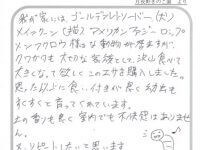 我が家には、ゴールデンレトリーバー(犬)
メインクーン(猫) アメリカンファジーロップ
メンフクロウ 様々な動物が居ますが、
フクロウも大切な家族として、沢山食べて
大きくなって欲しくこのエサを購入しました。
思った以上に食い付きが良く結果も
すくすくと育ってくれています。
上の香りも良く室内でも不快感はありません。
又、リピートしたいと思います